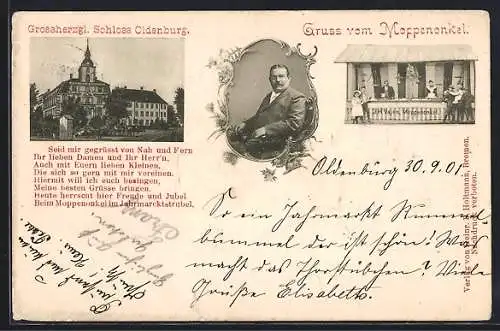 Grossherzgl. Schloss Oldenburg.
Gruss vom Moppenonkel.
Seid mir gegrüsst von Nah und Fern
Ihr lieben Damen und Ihr Herr'n,
Auch mit Euern lieben Kleinen,
Die sich so gern mit mir vereinen.
Hiermit will ich auch besingen,
Meine besten Grüsse bringen.
Heute herrscht hier Freude und Jubel
Beim Moppenonkel im Jahrmarktstrubel.
Oldenburg 30.9.01
So ein Jahrmarkt Rummel
bummel der ist schön! Was
macht das Thorstübchen? Viele
Grüße Elisabeth.
Verlag von Heinr. A. Hohmann, Bremen.
Nachdruck verboten.